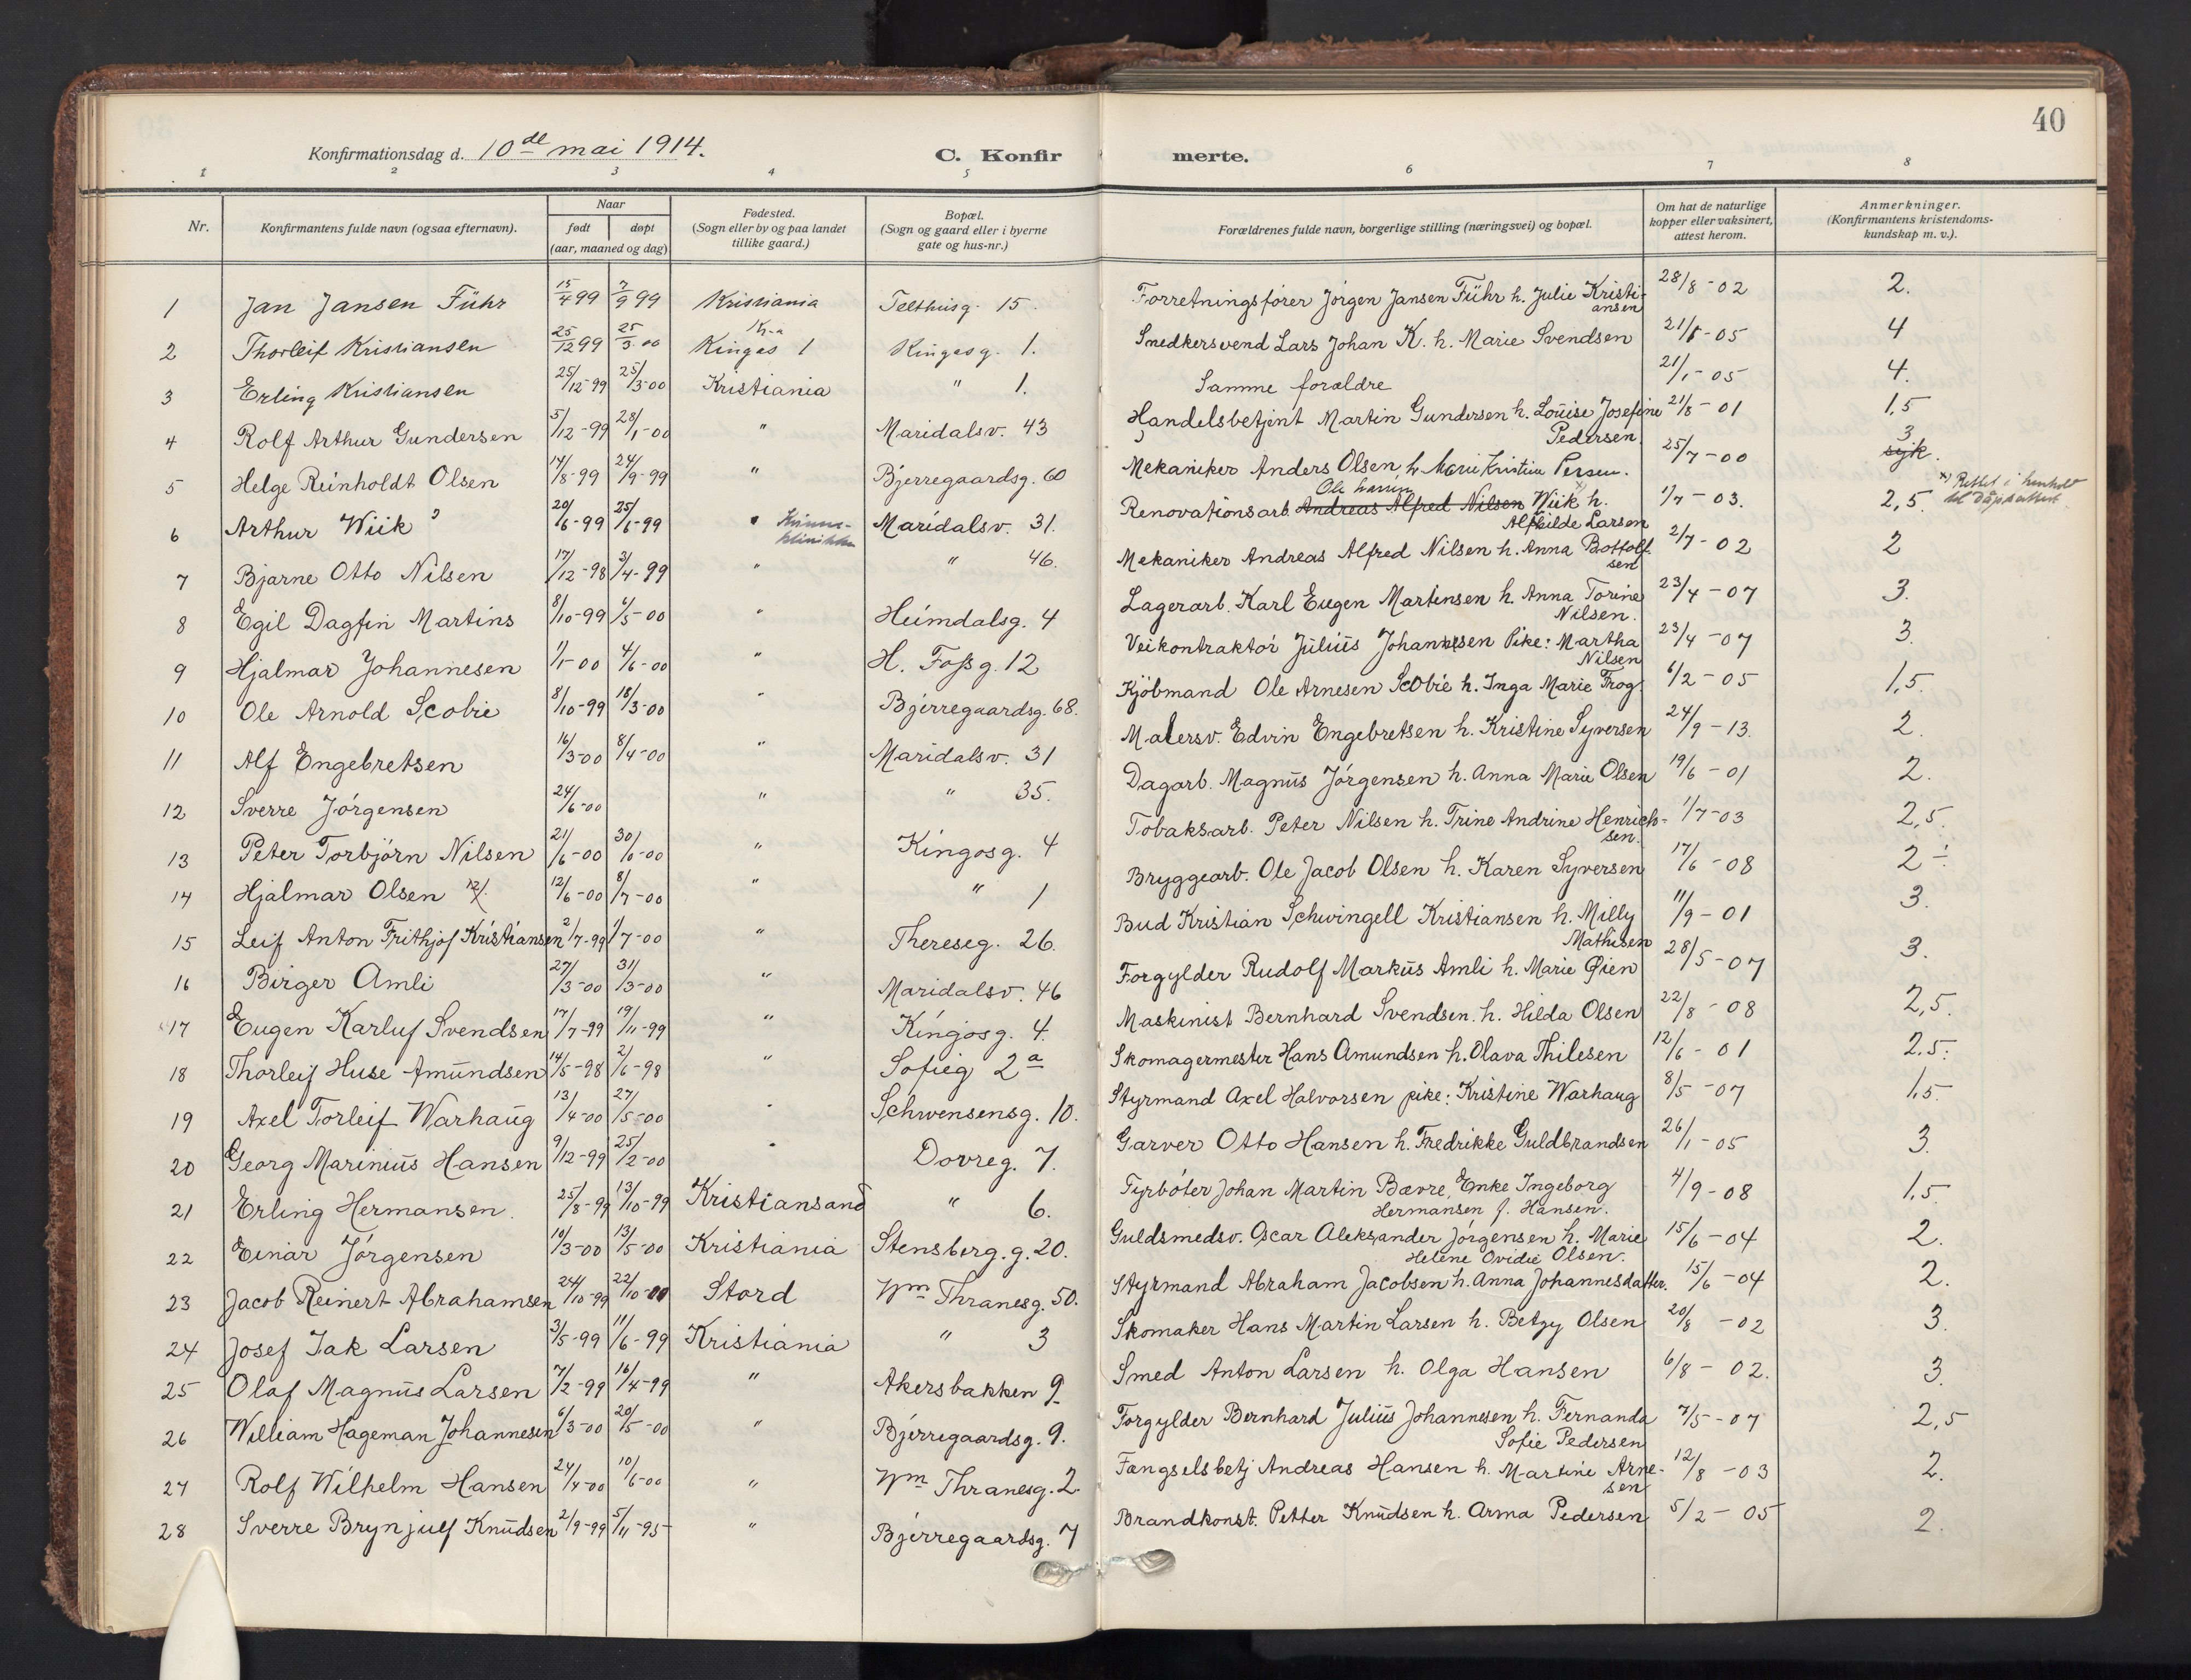 40
Konfirmationsdag d. 10de mai 1914.
C. Konfir merte.
1 2 3 4 5 6 7 8
Nr. Konfirmantens fulde navn (ogsaa efternavn). Naar født døpt (aar, maaned og dag) Fødested. (Sogn eller by og paa landet tillike gaard.) Bopæl. (Sogn og gaard eller i byerne gate og hus-nr.) Forældrenes fulde navn, borgerlige stilling (næringsvei) og bopæl. Om hat de naturlige kopper eller vaksinert, attest herom. Anmerkninger. (Konfirmantens kristendoms-kundskap m. v.).
1 Jan Jansen Führ 15/4 99 7/9 99 Kristiania Telthusg. 15. Forretningsfører Jörgen Jansen Führ h. Julie Kristiansen 28/8-02 2.
2 Thorleif Kristiansen 25/12 99 25/3 00 Kr.a Kingos 1 Kingosg. 1. Snedkersvend Lars Johan K. h. Marie Svendsen 21/1-05 4
3 Erling Kristiansen 25/12-99 25/3-00 Kristiania " 1. Samme forældre 21/1-05 4.
4 Rolf Arthur Gundersen 5/12-99 28/1-00 " Maridalsv. 43 Handelsbetjent Martin Gundersen h. Louise Josefine Pedersen. 21/8-01 1,5
5 Helge Reinholdt Olsen 14/8-99 24/9-99 " Bjerregaardsg. 60 Mekaniker Anders Olsen h. Marie Kristine Persen. 25/7-00 3 syk.
6 Arthur Wiik 20/6-99 25/6-99 " Kvinneklinikken Maridalsv. 31. Renovationsarb. Andreas Alfred Nilsen Ole Wiik h. Alfhilde Larsen 1/7-03. 2,5. x) Rettet i henhold til dåpsattest
7 Bjarne Otto Nilsen 17/12-98 3/4-99 " " 46. Mekaniker Andreas Alfred Nilsen h. Anna Bottolfsen 2/7-02 2
8 Egil Dagfin Martins 8/10-99 6/5-00 " Heimdalsg. 4 Lagerarb. Karl Eugen Martinsen h. Anna Torine Nilsen. 23/4-07 3.
9 Hjalmar Johannesen 1/1-00 4/6-00 " H. Fossg. 12 Veikontraktör Julius Johannesen Pike: Martha Nilsen 23/4-07 3.
10 Ole Arnold Scobie 8/10-99 18/3-00 " Bjerregaardsg. 68. Kjöbmand Ole Arnesen Scobie h. Inga Marie Frog. 6/2-05 1,5.
11 Alf Engebretsen 16/3-00 8/4-00 " Maridalsv. 31 Malersv. Edvin Engebretsen h. Kristine Syversen 24/9-13. 2.
12 Sverre Jörgensen 24/6-00 " " 35. Dagarb. Magnus Jörgensen h. Anna Marie Olsen 19/6-01 2.
13 Peter Torbjörn Nilsen 21/6-00 30/6-00 " Kingosg. 4 Tobaksarb. Peter Nilsen h. Trine Andrine Henrichsen. 1/7-03 2,5.
14 Hjalmar Olsen 12/6-00 8/7-00 " " 1 Bryggearb. Ole Jacob Olsen h. Karen Syversen 17/6-08 2-.
15 Leif Anton Frithjof Kristiansen 2/7-99 1/7-00 " Thereseg. 26. Bud Kristian Schwingell Kristiansen h. Milly Mathisen 11/9-01 3.
16 Birger Amli 27/3-00 31/3-00 " Maridalsv. 46 Forgylder Rudolf Markus Amli h. Marie Øien 28/5-07 3.
17 Eugen Karluf Svendsen 17/7-99 19/11-99 " Kingosg. 4. Maskinist Bernhard Svendsen. h. Hilda Olsen 22/8-08 2,5.
18 Thorleif Huse Amundsen 14/5-98 2/6-98 " Sofieg 2a Skomagermester Hans Amundsen h. Olava Thilesen 12/6-01 2.5.
19 Axel Torleif Warhaug 13/4-00 27/5-00 " Schwensensg. 10. Styrmand Axel Halvorsen pike: Kristine Warhaug 8/5-07 1.5.
20 Georg Marinius Hansen 9/12-99 25/2-00 " Dovreg. 7. Garver Otto Hansen h. Fredrikke Guldbrandsen 26/1-05 3.
21 Erling Hermansen. 25/8-99 13/10-99 Kristiansand " 6. Fyrböter Johan Martin Bævre, Enke Ingeborg Hermansen f. Hansen. 4/9-08 1,5.
22 Einar Jörgensen 10/3-00 13/5-00 Kristiania Stensberg.g. 20. Guldsmedsv. Oscar Aleksander Jörgensen h. Marie Helene Ovidie Olsen. 15/6-04 2.
23 Jacob Reinert Abrahamsen 24/10-99 22/10-00 Stord Wm Thranesg. 50. Styrmand Abraham Jacobsen h. Anna Johannesdatter. 15/6-04 2.
24 Josef Isak Larsen 3/5-99 11/6-99 Kristiania " 3 Skomaker Hans Martin Larsen h. Betzy Olsen 20/8-02 3.
25 Olaf Magnus Larsen 7/2-99 16/4-99 " Akersbakken 9 Smed Anton Larsen h. Olga Hansen 6/8-02. 3.
26 William Hageman Johannesen 6/3-00 20/5-00 " Bjerregaardsg. 9. Forgylder Bernhard Julius Johannesen h. Fernanda Sofie Pedersen 7/5-07 2,5
27 Rolf Wilhelm Hansen 24/4-00 10/6-00 " Wm Thranesg. 2. Fængselsbetj Andreas Hansen h. Martine Arnesen 12/8-03 2.
28 Sverre Brynjulf Knudsen 2/9-99 5/11-95 " Bjerregaardsg. 7 Brandkonst. Petter Knudsen h. Arma Pedersen 5/2-05 2.